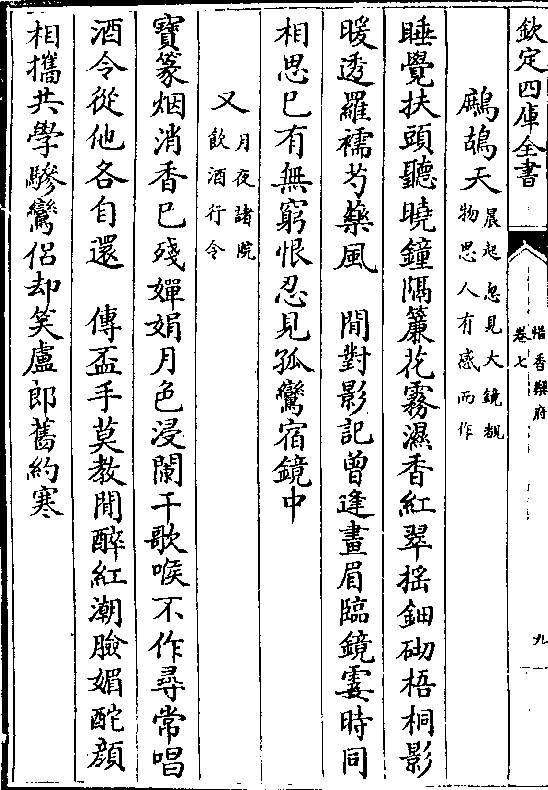 欽定四庫全書
惜香樂府
卷七
九
鷓鴣天
晨起忽見大鏡覩
物思人有感而作
睡覺扶頭聽曉鐘隔簾花霧濕香紅翠揺鈿砌梧桐影
暖透羅襦芍藥風　間對影記曾逢畫眉臨鏡霎時同
相思已有無窮恨忍見孤鸞宿鏡中
又
月夜諸院
飲酒行令
寶篆烟消香已殘嬋娟月色浸闌干歌喉不作尋常唱
酒令從他各自還　傳盃手莫教閒醉紅潮臉媚酡顔
相攜共學驂鸞侣却笑盧郎舊約寒